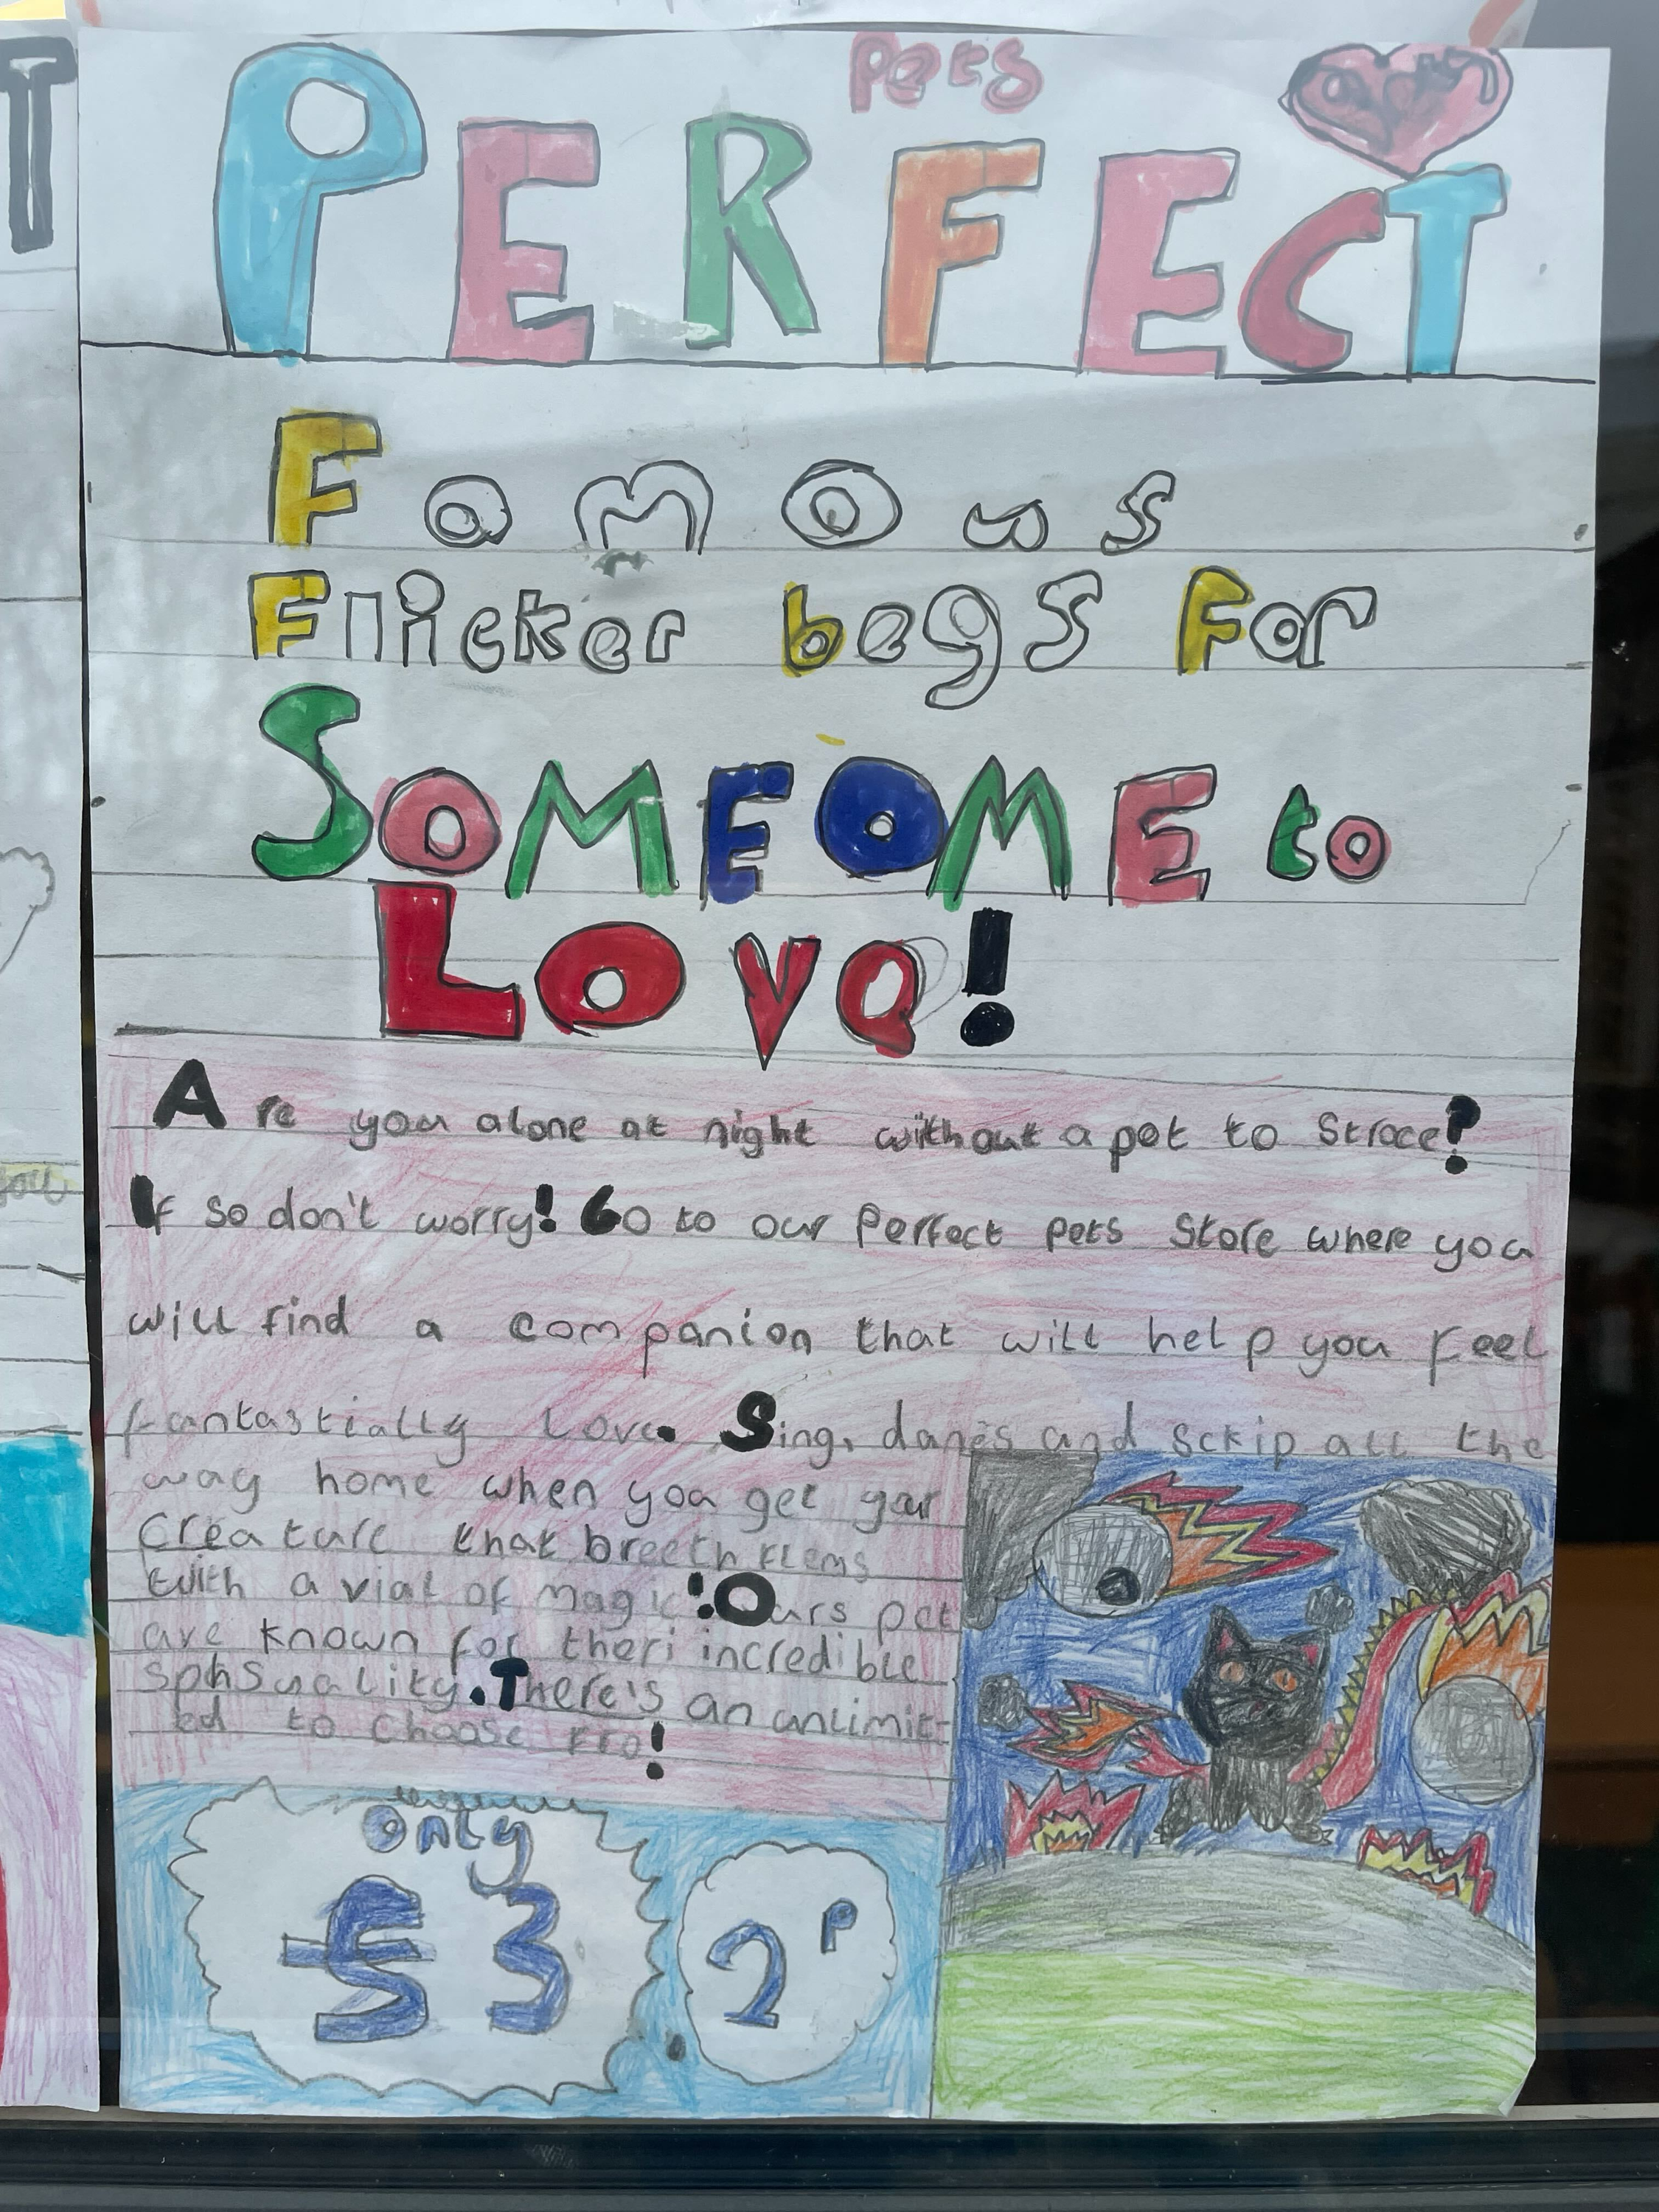 Pets
PERFECT
Famous
Flicker begs for
SOMEOME to
Love!
Are you alone at night without a pet to Stroce?
If so don't worry! Go to our Perfect pets Store where you
will find a companion that will help you feel
fantastially Love. Sing, danes and sckip all the
way home when you get your
Creature that breeth flems
with a vial of magic! Ours pet
are known for theri incredible
sphsuality. There's an unlimit-
ed to choose fro!
Only
£3
2P
T
you